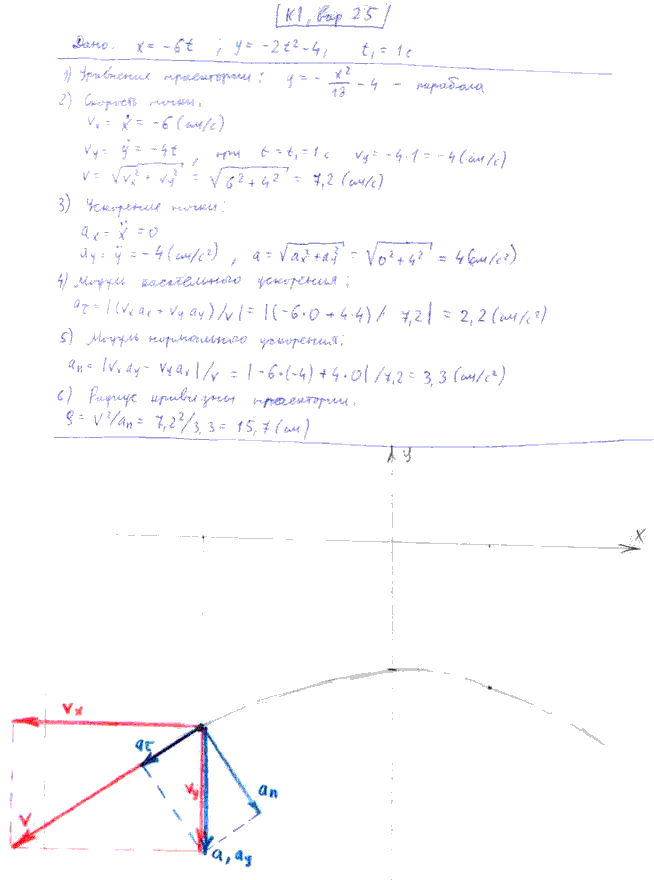 К1, вар 25
Дано: x = -6t ; y = -2t² - 4, t₁ = 1 с
1) Уравнение траектории: y = - x²/18 - 4 - парабола
2) Скорость точки.
Vx = ẋ = -6 (см/с)
Vy = ẏ = -4t, при t = t₁ = 1 с Vy = -4·1 = -4 (см/с)
V = √(Vx² + Vy²) = √(6² + 4²) = 7,2 (см/с)
3) Ускорение точки:
ax = ẍ = 0
ay = ÿ = -4 (см/с²), a = √(ax² + ay²) = √(0² + 4²) = 4 (см/с²)
4) Модуль касательного ускорения:
aτ = |(Vx ax + Vy ay)/V| = |(-6·0 + 4·4)/ 7,2| = 2,2 (см/с²)
5) Модуль нормального ускорения:
an = |Vx ay - Vy ax|/V = |-6·(-4) + 4·0|/7,2 = 3,3 (см/с²)
6) Радиус кривизны траектории.
ρ = V²/an = 7,2²/3,3 = 15,7 (см)
y
x
Vx
aτ
Vy
an
V
a, ay